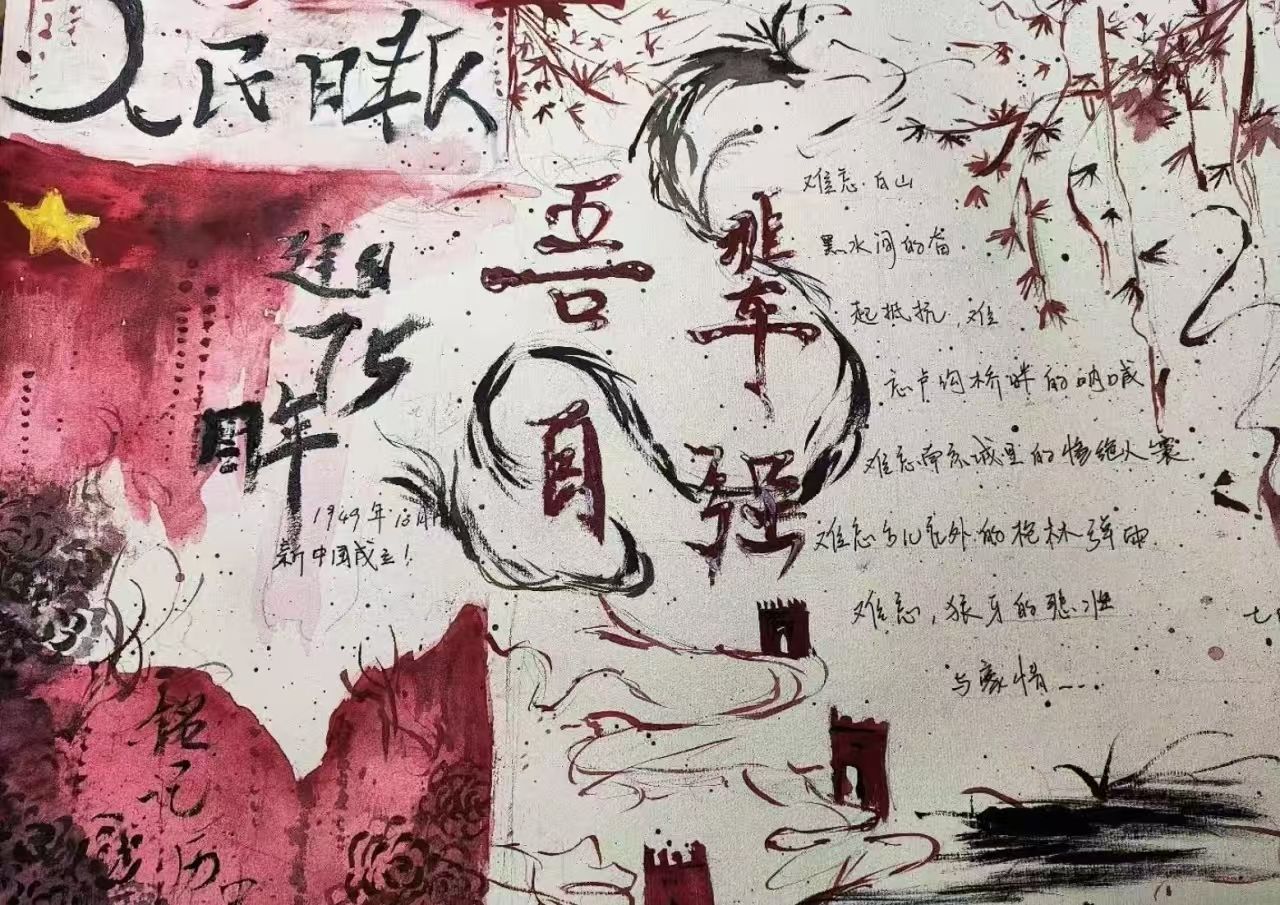 人民日报
建国
75
年
1949年10月1日
新中国成立！
吾辈
自强
难忘.白山
黑水间的奋
起抵抗，难
忘卢沟桥畔的呐喊
难忘南京城里的惨绝人寰.
难忘的枪林弹雨.
难忘，狼牙的悲壮
与豪情....
铭记历
七